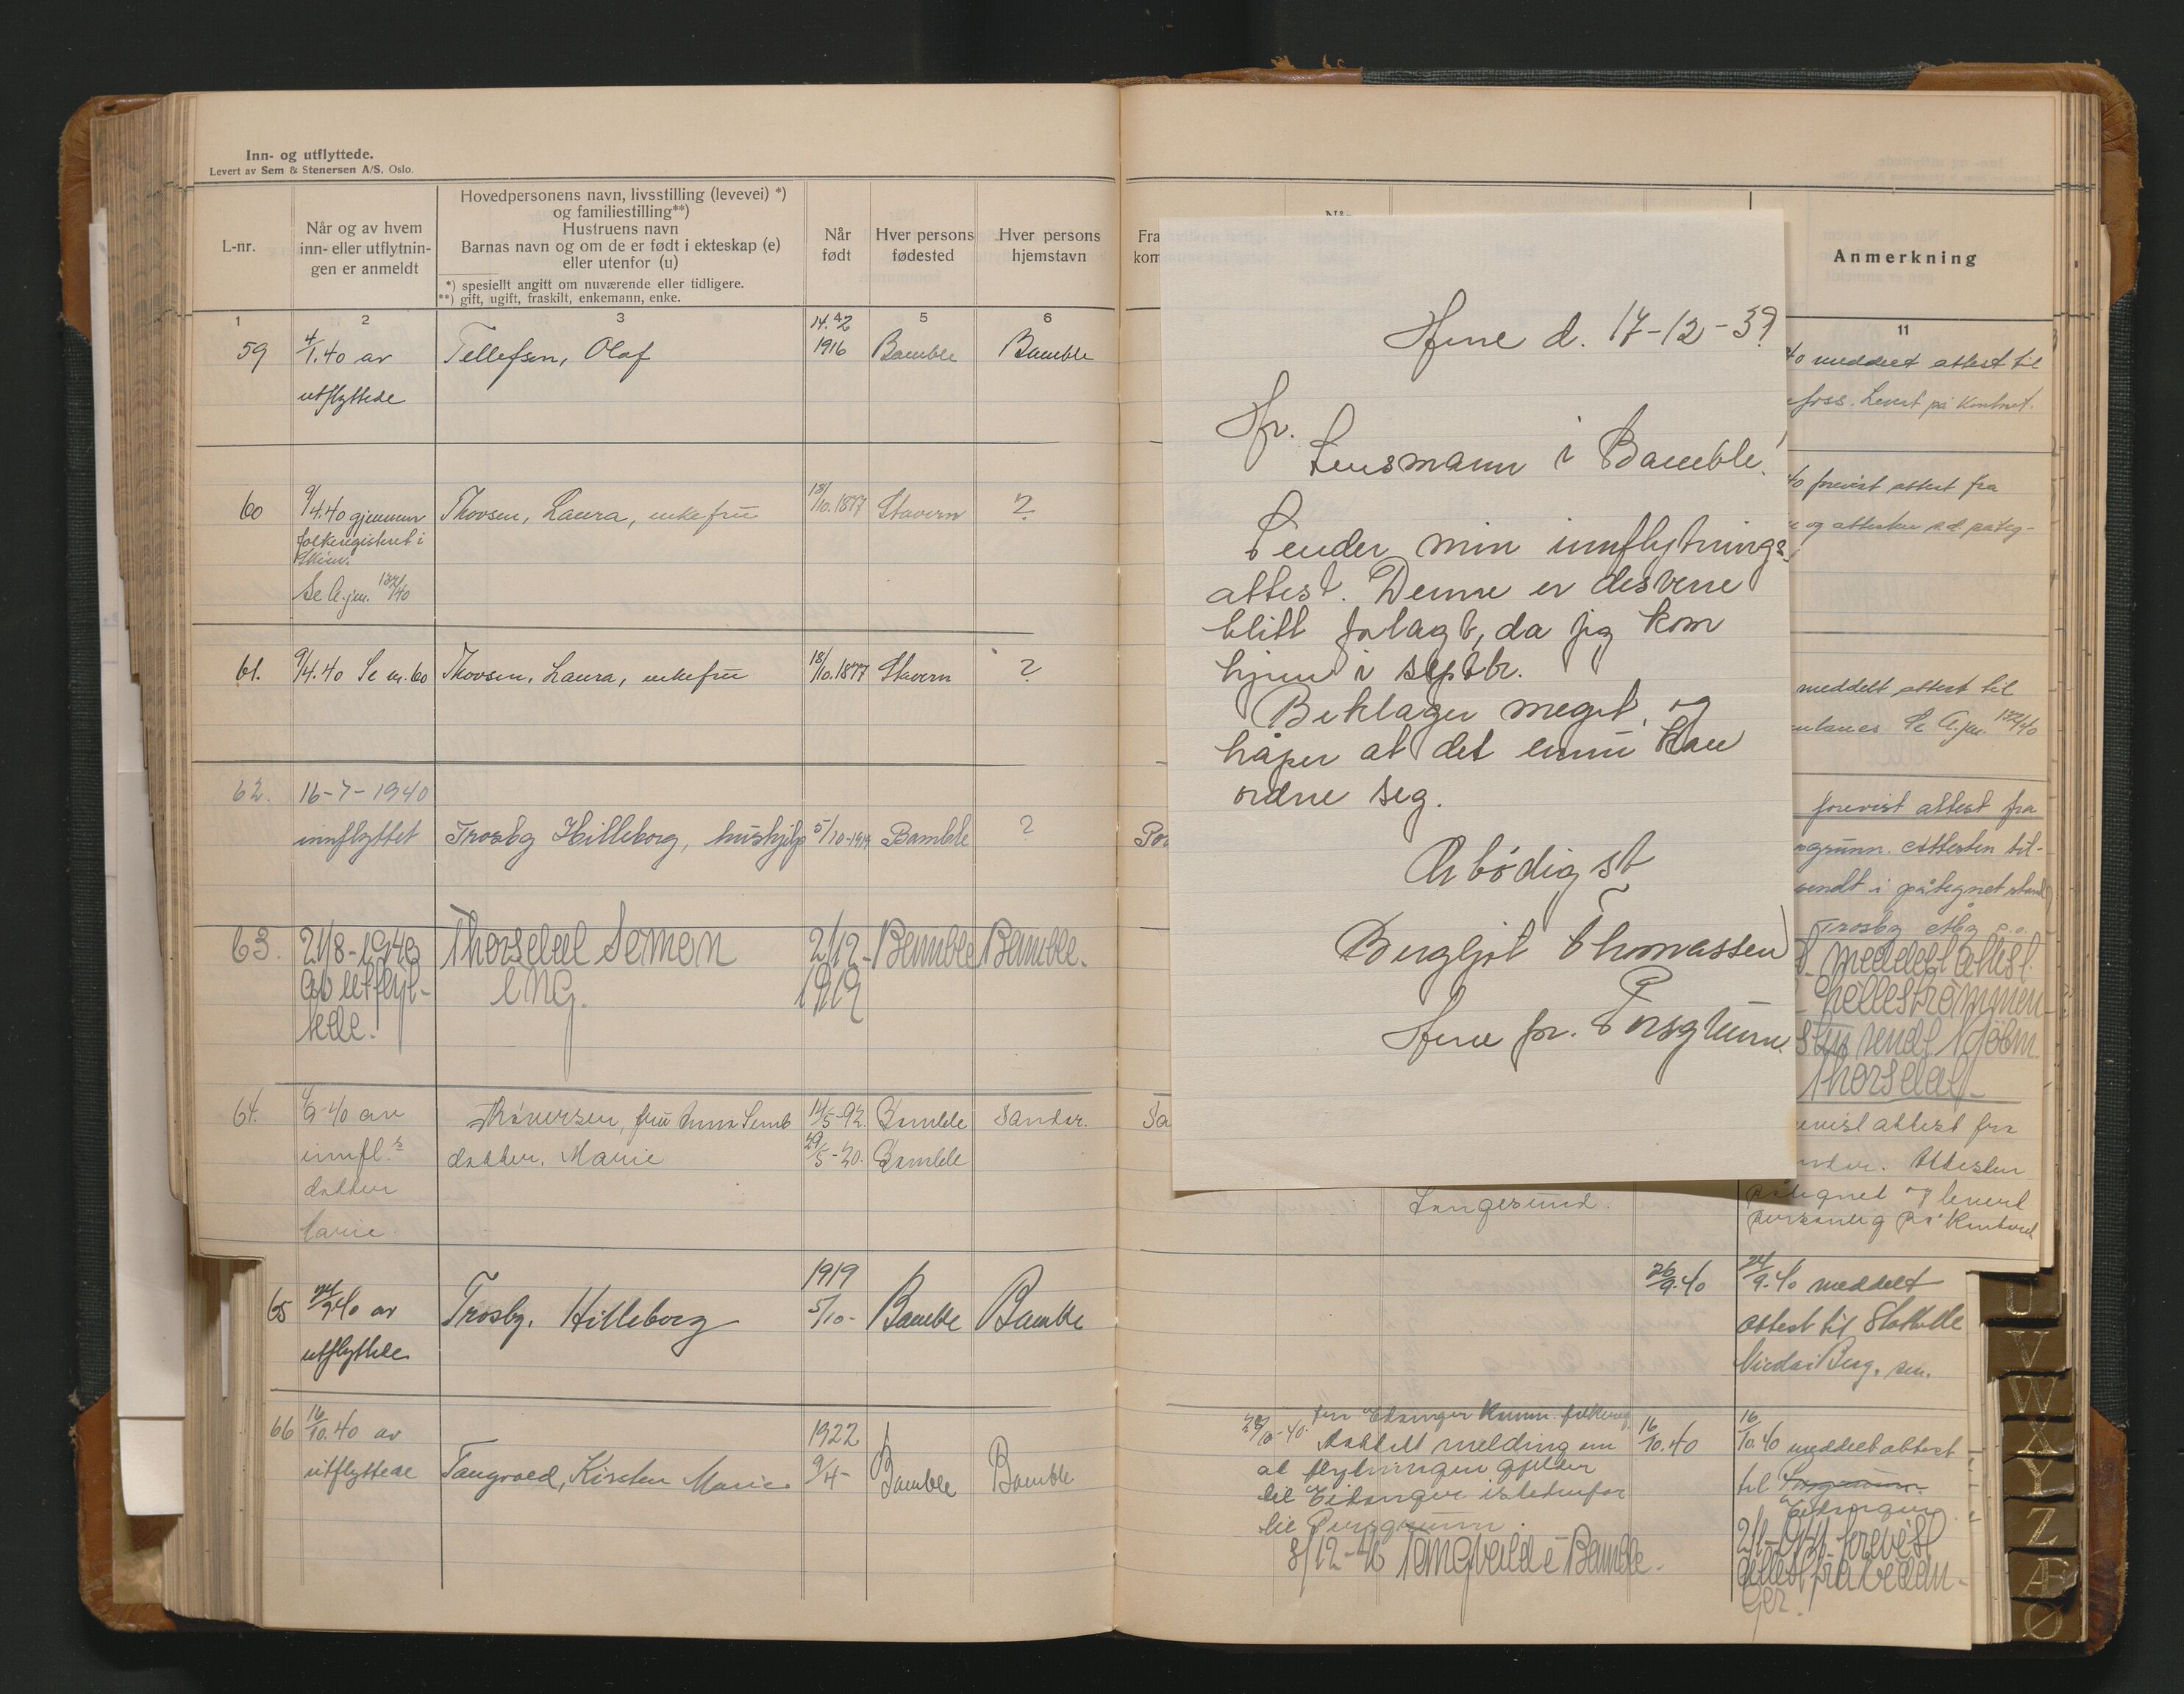 Inn- og utflyttede.
Levert av Sem & Stenersen A/S, Oslo.
L-nr.
Når og av hvem
inn- eller utflytnin-
gen er anmeldt
Hovedpersonens navn, livsstilling (levevei) *)
og familiestilling**)
Hustruens navn
Barnas navn og om de er født i ekteskap (e)
eller utenfor (u)
*) spesiellt angitt om nuværende eller tidligere.
**) gift, ugift, fraskilt, enkemann, enke.
Når
født
Hver persons
fødested
Hver persons
hjemstavn
1 2 3 5 6
59 4/1.40 av Tellefsen, Olaf 14. 2 1916 Bamble Bamble
utflyttede
60 9/4.40 gjennem Thovsen, Laura, enkefru 18/10.1877 Stavern ?
folkeregisteret i
Skien.
Se A.jnr. 132/40
61. 9/4.40 Se nr. 60 Thovsen, Laura, enkefru 18/10.1877 Stavern ?
62. 16-7-1940
innflyttet Trosby Hilleborg, hushjelp 5/10-1919 Bamble ?
63. 21/8-1940 Thorsdal Simon 2/12- Bamble Bamble.
av utflyt- ung. 1919
tede.
64. 4/9 40 av Thoversen, fru Anna Semb 14/5-92. Bamble Sandar.
innfl.s datter, Marie 29/5-20. Bamble
datter
Marie
65 24/9.40 av Trosby, Hilleborg 1919 5/10- Bamble Bamble
utflyttede
66 16/10.40 av 1922
utflyttede Tangvald, Kirsten Marie 9/4- Bamble Bamble
Fra
kom
Når
Por
Sa
Hr.
Herre d. 17-12-39
Lensmann i Bamble!
Sender min innflytnings-
attest. Denne er desverre
blitt forlagt, da jeg kom
hjem i septbr.
Beklager meget, og
håper at det ennu kan
ordne seg.
Ærbødigst
Bergljot Thomassen
Herre pr. Porsgrunn.
Anmerkning
11
40 meddelt attest til
foss. Levert på kontoret.
40 forevist attest fra
og attesten s.d. påteg-
meddelt attest til
Se A.jnr. 132/40
forevist attest fra
grunn. Attesten til-
sendt i påtegnet stand
Trosby Åby p.o.
meddelt attest
Hellestrømmen
sendt
Thorsdal
evist attest fra
ndar. Attesten
påtegnet og levert
personlig på kontoret
Langesund.
26/9.40 24/9.40 meddelt
attest til Stathelle
Nicolai Berg, sen.
28/10-40. fra Eidanger komm. folkereg.
mottatt melding om 16/10.40 16/10.40 meddelt attest
at flytningen gjelder
til Eidanger istedenfor til Porsgrunn
til Porsgrunn. Eidanger
8/12-46 Tangvald i Bamble. 2/1-1941 forevist
attest fra Eidan-
ger.
U
V
W
X
Y
Z
Æ
Ø